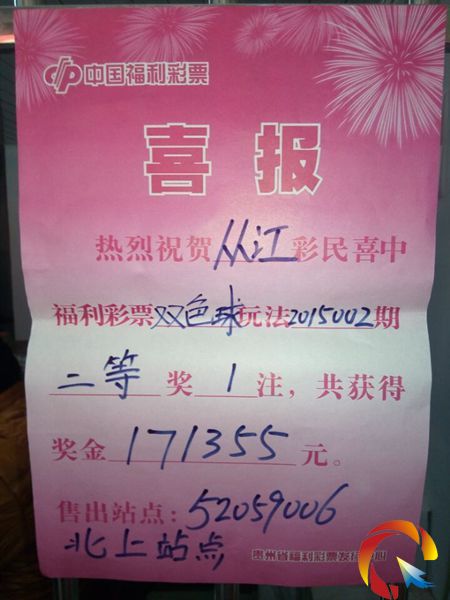 中国福利彩票
喜报
热烈祝贺从江彩民喜中
福利彩票双色球玩法2015002期
二等奖1注，共获得
奖金171355元。
售出站点：52059006
北上站点
贵州省福利彩票发行中心